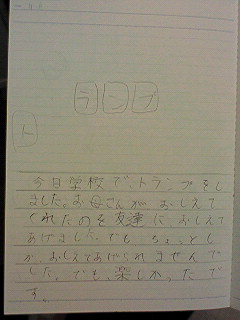 ト
ランプ
今日学校で、トランプをし
ました。お母さんが、おしえて
くれたのを友達に、おしえて
あげました。でも、ちょっとし
か、おしえてあげられませんで
した。でも、楽しかったで
す。